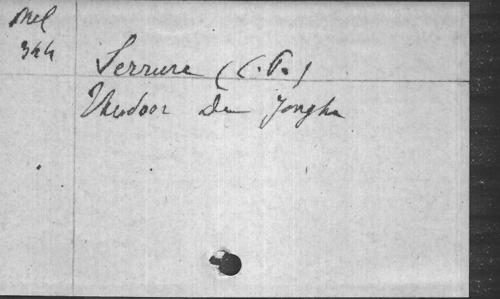 Mel
344
Serrure (C.P.)
Theodoor De Jonghe